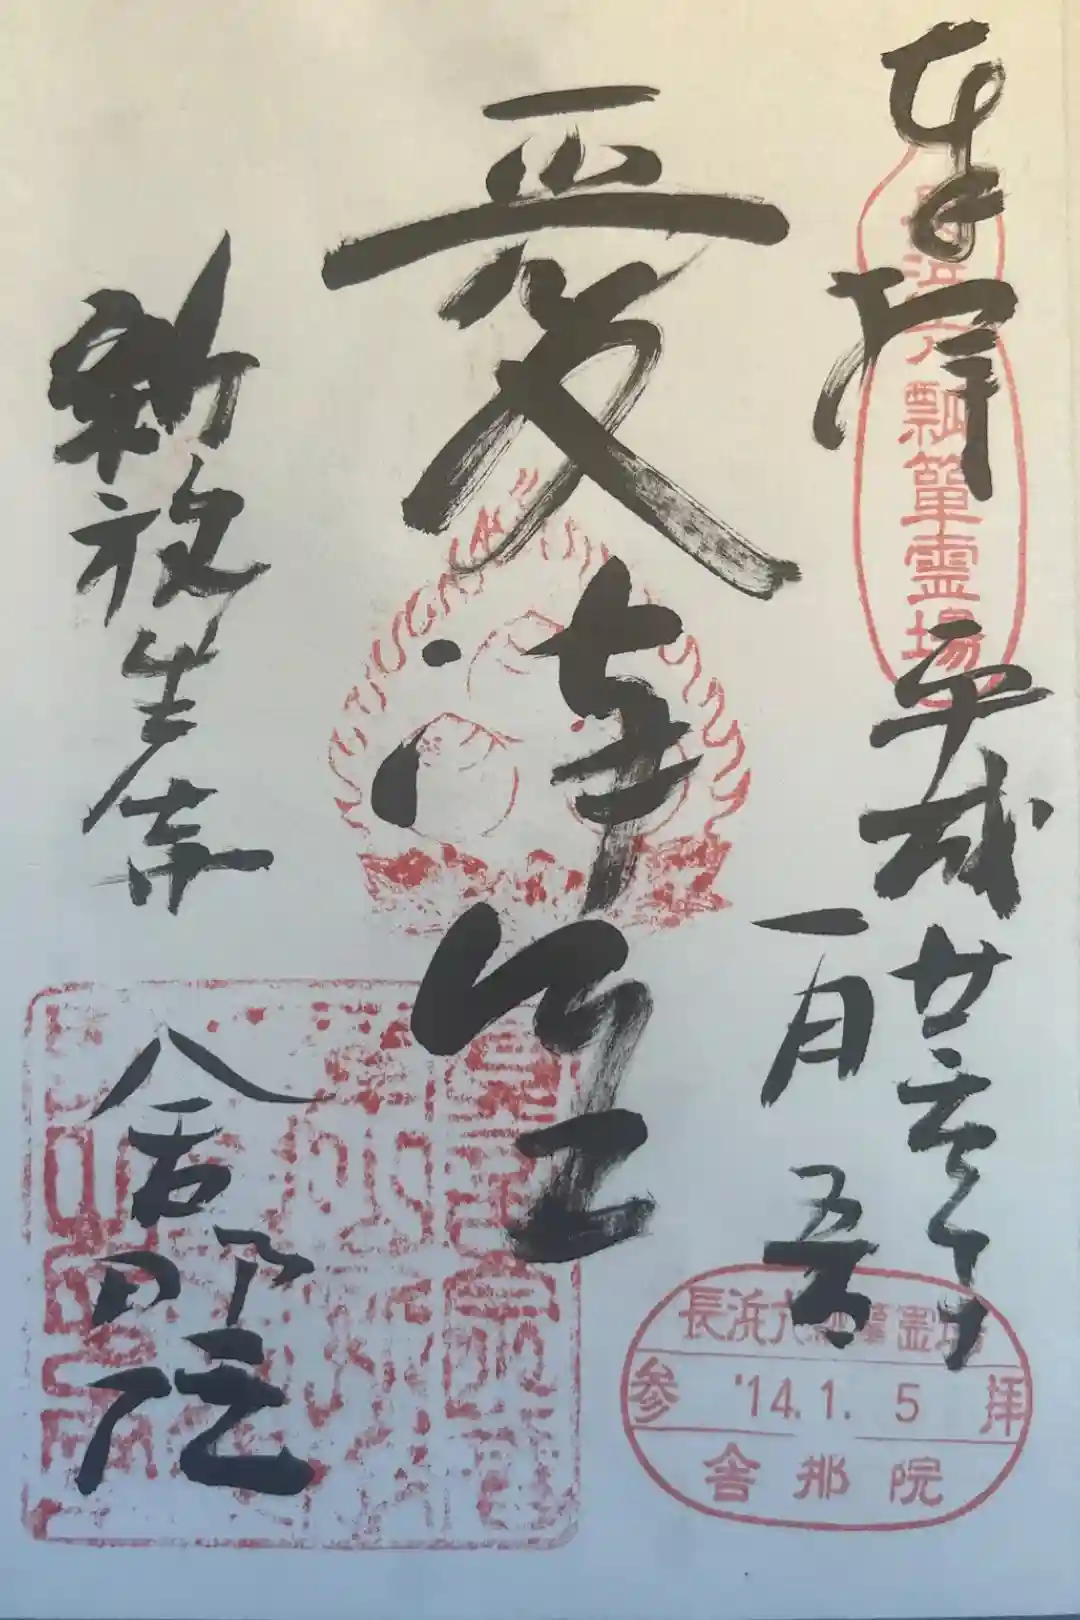 奉拝
長浜六瓢箪霊場
平成廿六年
一月五日
愛染明王
新放生寺
舎那院
長浜六瓢箪霊場
参 '14.1.5 拝
舎那院